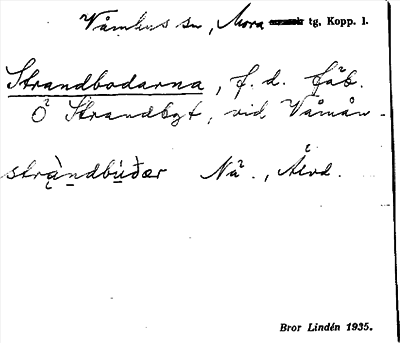 Våmhus sn, Mora tg, Kopp. l.
Strandbodarna, f. d. fäb.
Ö Strandbgt, vid Våmån.
stràndbúðær Nä., Älvd.
Bror Lindén 1935.